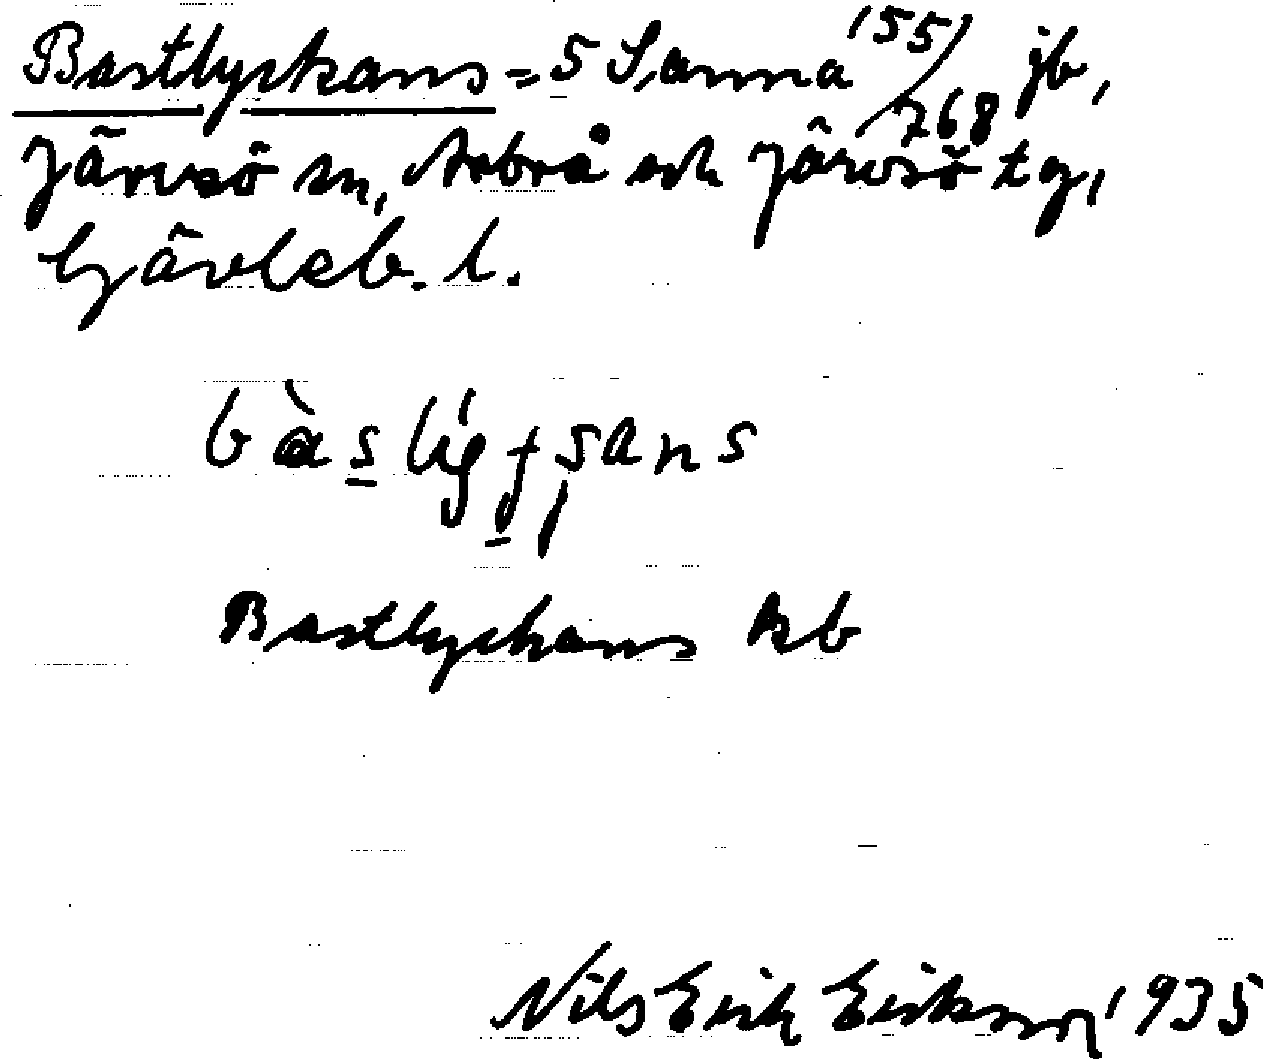 Bastlyckans = 5 Sanna 155/768 jb,
Järvsö sn, Arbrå och Järvsö tg,
Gävleb. l.
Bastlyckans kb
Nils Erik Erikson 1935